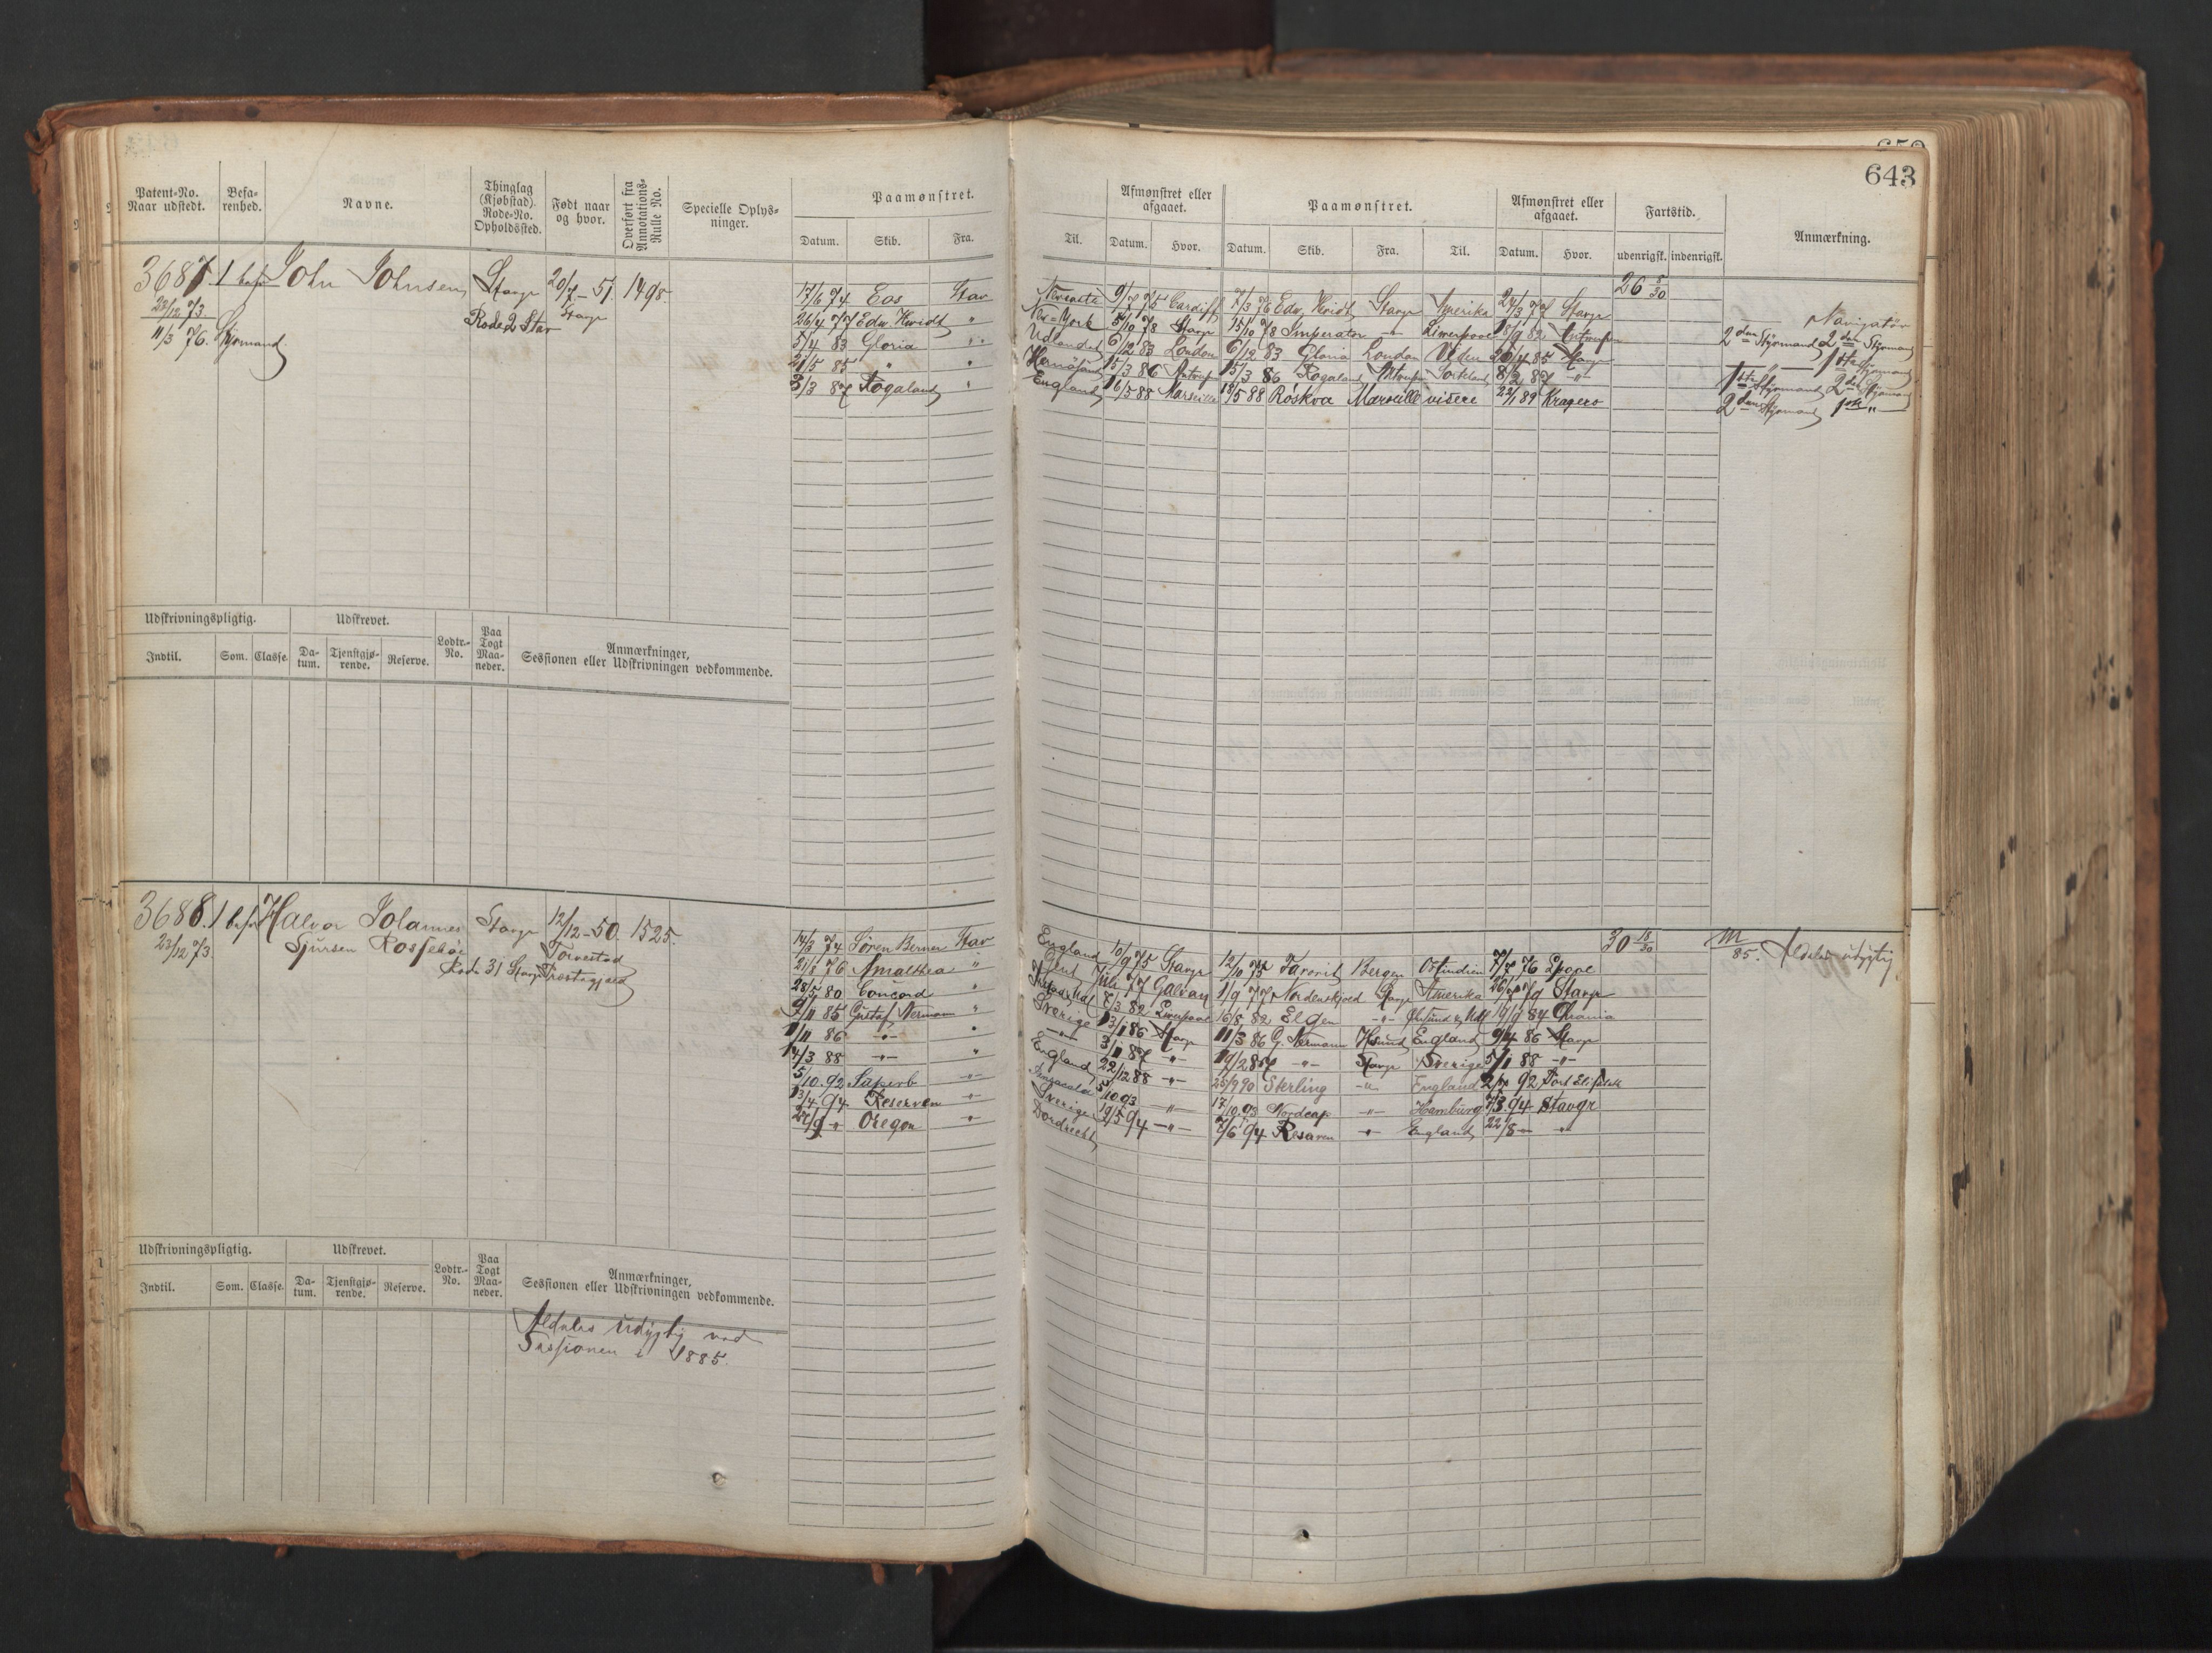 643
Patent-No. Naar udstedt.
Befa-renhed.
Navne.
Thinglag (Kjøbstad). Rode-No. Opholdssted.
Født naar og hvor.
Overført fra Annotations-Rulle No.
Specielle Oplys-ninger.
Paamønstret.
Datum. Skib. Fra.
Til.
Afmønstret eller afgaaet.
Datum. Hvor.
Paamønstret.
Datum. Skib. Fra. Til.
Afmønstret eller afgaaet.
Datum. Hvor.
Fartstid.
udenrigsk. indenrigsk.
Anmærkning.
3687. 1 bef. John Johnsen Stavgr 20/7-51. 1498
23/12 73 Rode 2 Stav Stavgr
11/3 76. Styrmand
26 5/30
17/6 74 Eos Stav 9/7 75 Cardiff 7/3 76 Edw. Hvidt Stavgr Amerika 24/3 77 Stavgr Navigatør
26/4 77 Edw. Hvidt " New-York 8/10 78 Stavgr 15/10 78 Imperator -"- Liverpool 18/9 82 Antwrp 2den Styrmand 2den Styrmand
5/4 83 Gloria " Udlandet 6/12 83 London 6/12 83 Gloria London Viden 20/4 85 Stavgr -"- 1ste Styrmand
21/5 85 " " Hernösand 15/3 86 Antwrp 15/3 86 Rogaland Antwrp 8/2 87 -"- 1ste Styrmand 2den Styrmand
3/3 87 Rogaland " England 16/5 88 Marseille 19/5 88 Roskva Marseille videre 22/1 89 Kragerø 2den Styrmand 1ste "
Udskrivningspligtig. Udskrevet. Lodtr.-No. Paa Togt Maa-neder. Anmærkninger, Sessionen eller Udskrivningen vedkommende.
Indtil. Som. Classe. Da-tum. Tjenstgjø-rende. Reserve.
3688. 1 bef. Halvor Johannes Stavgr 12/12-50. 1525.
23/12 73. Sjursen Rossehøi Torvestad
Rode 31 Stavgr Præstegjæld
30 18/30 85. Aldeles udygtig
14/3 74 Søren Berner Stav England 10/9 75 Stavgr 12/10 75 Favorit Bergen Ostindien 7/7 76
21/8 76 Amalthea " 77 Galvay 1/9 77 Nordenskjold Stavgr Amerika 26/7 79 Stavgr
28/5 80 Concord " 7/3 82 Liverpool 16/8 82 Elgen -"- 84 Chrania
9/11 85 Gustaf Nerman " Sverige 13/1 86 Stavgr 11/3 86 G. Nermann Hsund England 9/4 86 Stavgr
1/11 86 -"- " -"- 3/1 87 -"- 19/2 87 -"- Stavgr Sverige 5/1 88 -"-
14/3 88 -"- " England 22/12 88 -"- 25/9 90 Sterling -"- England 92
5/10. 92 Superb -"- 5/10 93 -"- 17/10 93 Nordcap -"- Hamburg 7/3. 94 Stavgr
13/4 94 Reserven " Sverige 19/5 94 -"- 7/6 94 Resaren " England 22/8 - "
27/9 " Oregon " Dordrecht
Udskrivningspligtig. Udskrevet. Lodtr.-No. Paa Togt Maa-neder. Anmærkninger, Sessionen eller Udskrivningen vedkommende.
Indtil. Som. Classe. Da-tum. Tjenstgjø-rende. Reserve.
Aldeles udygtig ved
Sessionen i 1885.